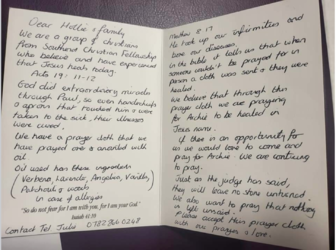 Dear Hollie & family
We are a group of christians
from Southend Christian Fellowship
who believe and have experienced
that Jesus heals today.
Acts 19: 11-12
God did extraordinary miracles
through Paul, so even handkerchiefs
& aprons that touched him were
taken to the sick, their illnesses
were cured.
We have a prayer cloth that we
have prayed over & anointed with
oil
Oil used has these ingredients
(Verbena, Lavender, Angelica, Vanilla,
Patchouli & woods)
in case of allergies
"So do not fear for I am with you, for I am your God."
Isaiah 41:10
Contact Tel Julie
Matthew 8:17
He took up our infirmities and
bore our diseases.
In the bible it tells us that when
someone couldn't be prayed for in
person a cloth was sent & they were
healed
We believe that through this
prayer cloth we are praying
for Archie to be healed in
Jesus name.
If there is an opportunity for
us we would love to come and
pray for Archie. We are continuing
to pray.
Just as the judge has said,
they will leave no stone unturned.
We also want to pray that nothing
is left unsaid.
Please accept this prayer cloth
with our prayers & love.